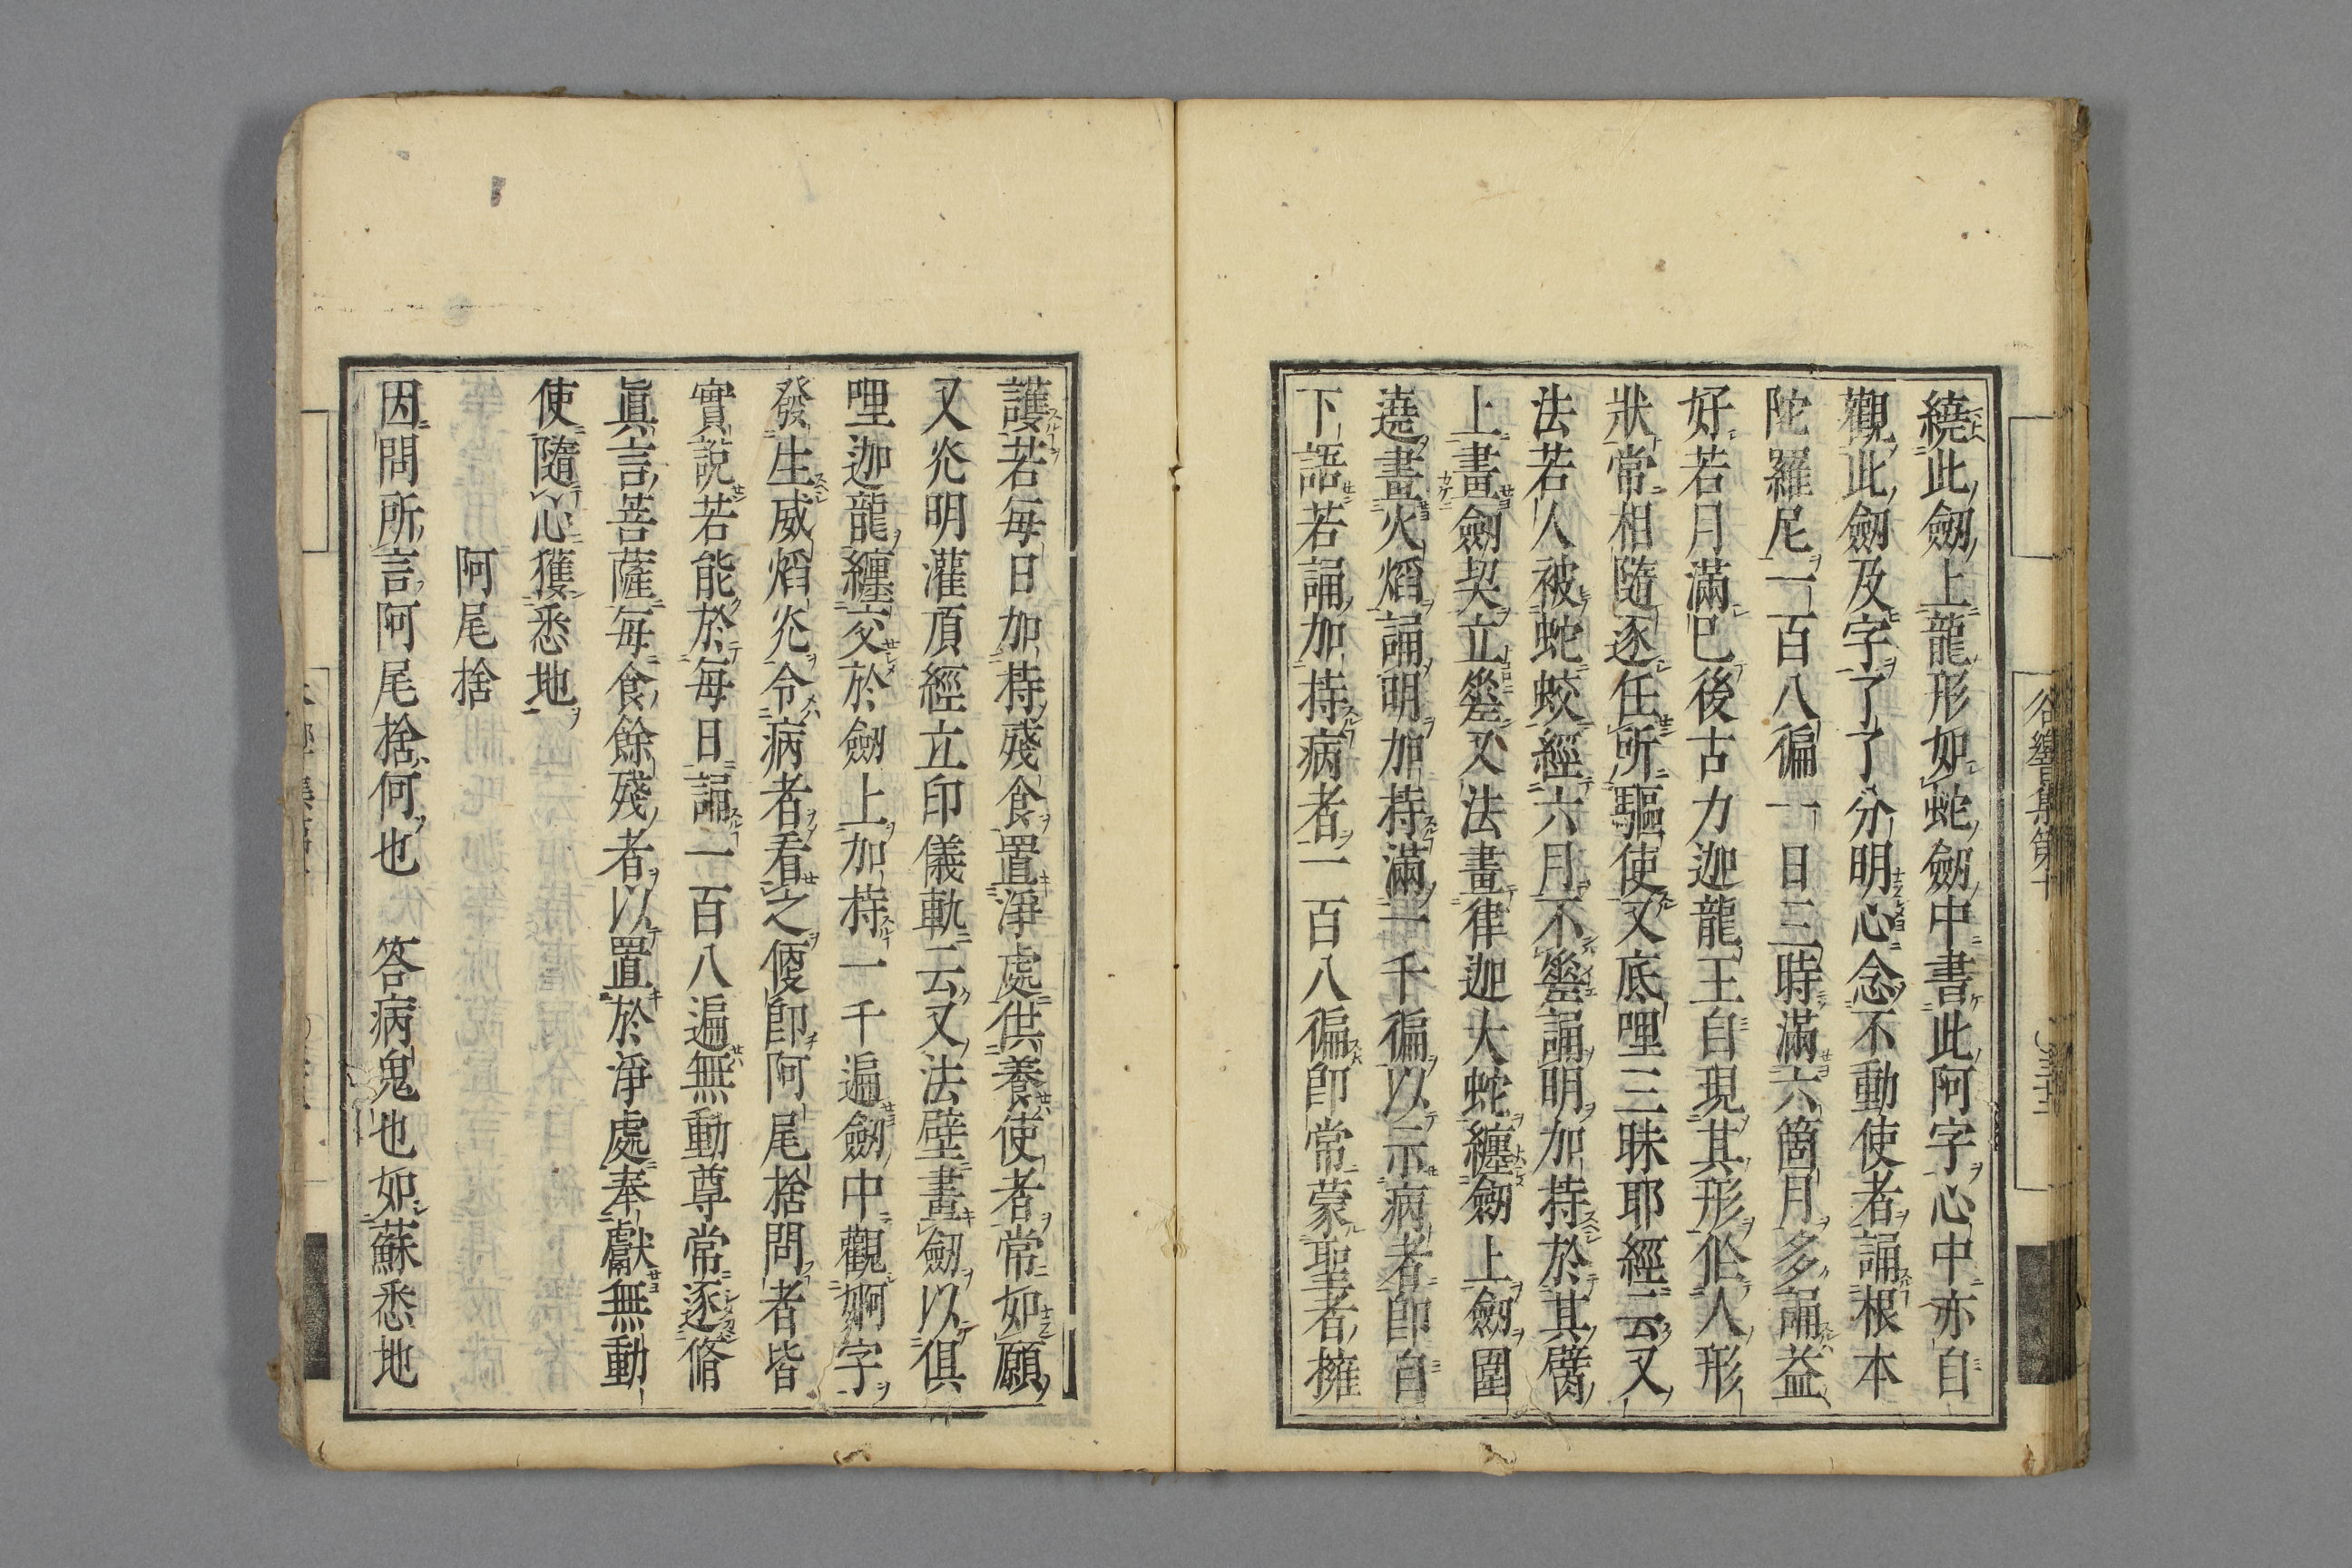 繞此劒上龍形如蛇劒中書此阿字心中亦自
觀此劒及字了了分明心念不動使者誦根本
陀羅尼一百八徧一日三時滿六箇月多誦益
好若月滿已後古力迦龍王自現其形作人形
狀常相隨逐任所驅使又底哩三昧耶經云又
法若人被蛇蛟經六月不瘥誦明加持於其臂
上畫劒契立瘥又法畫律迦大蛇纏劒上劒圍
遶畫火焰誦明加持滿一千徧以示病者卽自
下語若誦加持病者一百八徧卽常蒙聖者擁
護若每日加持殘食置淨處供養使者常如願
又光明灌頂經立印儀軌云又法壁畫劒以俱
哩迦龍纏交於劒上加持一千遍劒中觀婀字
發生威焰光令病者看之便卽阿尾捨問者皆
實說若能於每日誦一百八遍無動尊常逐脩
眞言菩薩每食餘殘者以置於淨處奉獻無動
使隨心獲悉地
阿尾捨
因問所言阿尾捨何也 答病鬼也如蘇悉地